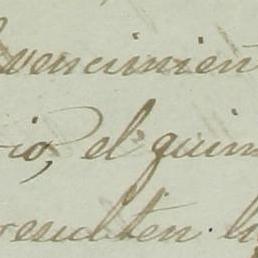 vencimien
rio, el quin
resulten. l